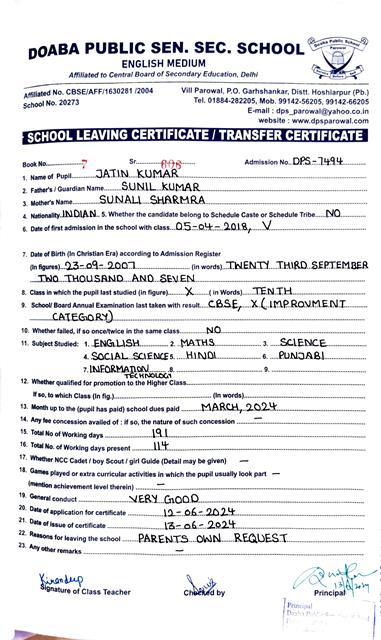 DOABA PUBLIC SEN. SEC. SCHOOL
ENGLISH MEDIUM
Affiliated to Central Board of Secondary Education, Delhi
Affiliated No. CBSE/AFF/1630281 /2004
School No. 20273
Vill Parowal, P.O. Garhshankar, Distt. Hoshiarpur (Pb.)
Tel. 01884-282205, Mob. 99142-56205, 99142-66205
E-mail : dps_parowal@yahoo.co.in
website : www.dpsparowal.com
SCHOOL LEAVING CERTIFICATE / TRANSFER CERTIFICATE
Book No. 7 Sr. 608 Admission No. DPS-7494
1. Name of Pupil JATIN KUMAR
2. Father's / Guardian Name SUNIL KUMAR
3. Mother's Name SUNALI SHARMRA
4. Nationality INDIAN 5. Whether the candidate belong to Schedule Caste or Schedule Tribe NO
6. Date of first admission in the school with class 05-04-2018, V
7. Date of Birth (In Christian Era) according to Admission Register
(In figures) 23-09-2007 (in words) TWENTY THIRD SEPTEMBER
TWO THOUSAND AND SEVEN
8. Class in which the pupil last studied (in figure) X (in Words) TENTH
9. School/ Board Annual Examination last taken with result CBSE, X (IMPROVMENT
CATEGORY)
10. Whether failed, if so once/twice in the same class NO
11. Subject Studied : 1. ENGLISH 2. MATHS 3. SCIENCE
4. SOCIAL SCIENCE 5. HINDI 6. PUNJABI
7. INFORMATION TECHNOLOGY 8. 9.
12. Whether qualified for promotion to the Higher Class
If so, to which Class (In fig.) (In Words)
13. Month up to the (pupil has paid) school dues paid MARCH, 2024
14. Any fee concession availed of : if so, the nature of such concession —
15. Total No of Working days 191
16. Total No. of Working days present 114
17. Whether NCC Cadet / boy Scout / girl Guide (Detail may be given) —
18. Games played or extra curricular activities in which the pupil usually look part —
(mention achievement level therein) —
19. General conduct VERY GOOD
20. Date of application for certificate 12-06-2024
21. Date of issue of certificate 13-06-2024
22. Reasons for leaving the school PARENTS OWN REQUEST
23. Any other remarks —
Kirandeep
Signature of Class Teacher
Checked by
Principal
Principal